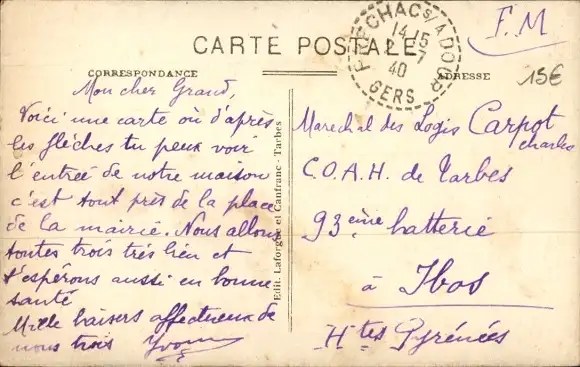 CARTE POSTALE
F.M
PRÉCHAC S/ADOUR
14 15
7
40
GERS
CORRESPONDANCE
ADRESSE
15€
Mon cher Grand,
Voici une carte où d'après
les flèches tu peux voir
l'entrée de notre maison
c'est tout près de la place
de la mairie. Nous allons
toutes trois très bien et
t'espérons aussi en bonne
santé
Mille baisers affectueux de
nous trois Yvonne
Edit. Laforgue et Canfranc - Tarbes
Marechal des Logis Carpot
Charles
C.O.A.H. de Tarbes
93eme batterie
à Ibos
Htes Pyrénées